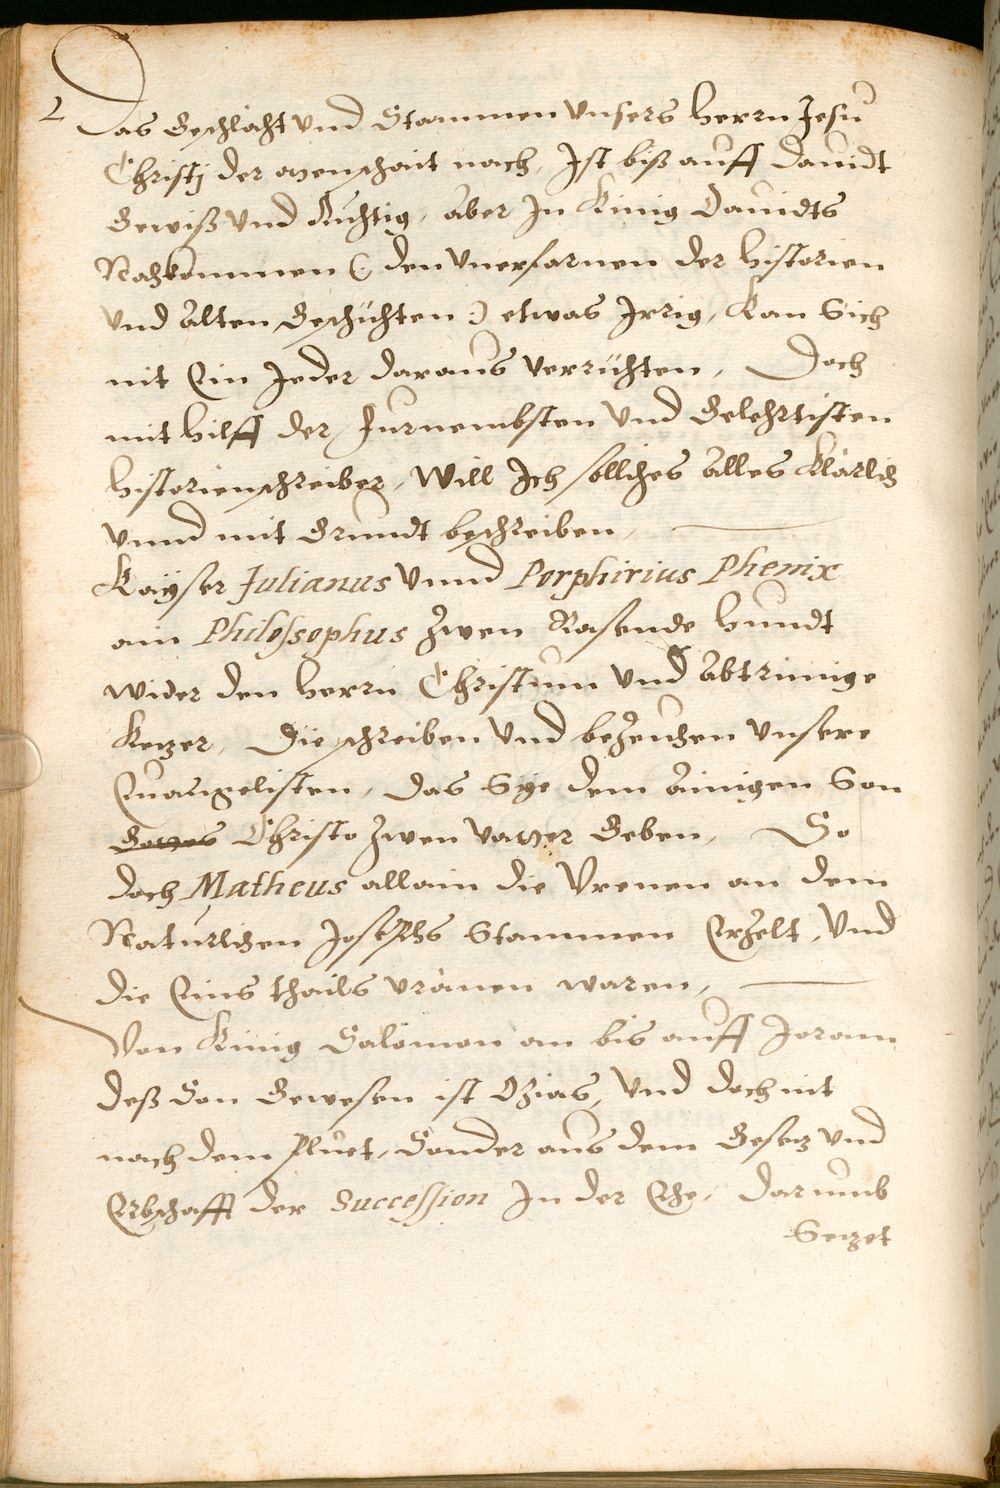 2 Das Geschlächt Vnd Stammen Vnsers Herrn Jesu
Christj der menschait nach, Ist biß auff Dauidt
Gewiß Vnd Richtig, aber In Künig Dauidts
Nachkommen (: den Vnerfarnen der Historien
Vnd Alten Geschichten :) etwas Jrrig, Kan Sich
nit Ein Jeder daraus Verrichten, Doch
mit Hilff der Furnembsten Vnd Gelehrtisten
Historienschreiber, Will Ich sollches Alles Klärlich
Vnnd mit Grundt beschreiben,
Kayser Julianus Vnnd Porphirius Phenix
ain Philosophus Zwen Rasende Hundt
Wider den Herrn Christum Vnd Abtrinnige
Kezer, Die schreiben Vnd beZeuchen Vnsere
Euangelisten, das Sye dem Ainigen Son
Gottes Christo Zwen Vatter Geben, So
doch Matheus allain die Vrenen an dem
Naturlichen Josephs Stammen ErZelt, Vnd
die Eins thails Vränen waren,
Von Künig Salomon an bis auff Joram
deß Son Gewesen ist Ozias, Vnd doch nit
nach dem Pluet, Sonder aus dem Gesez Vnd
Erbschafft der Succession In der Ehe, Darumb
Gesezet